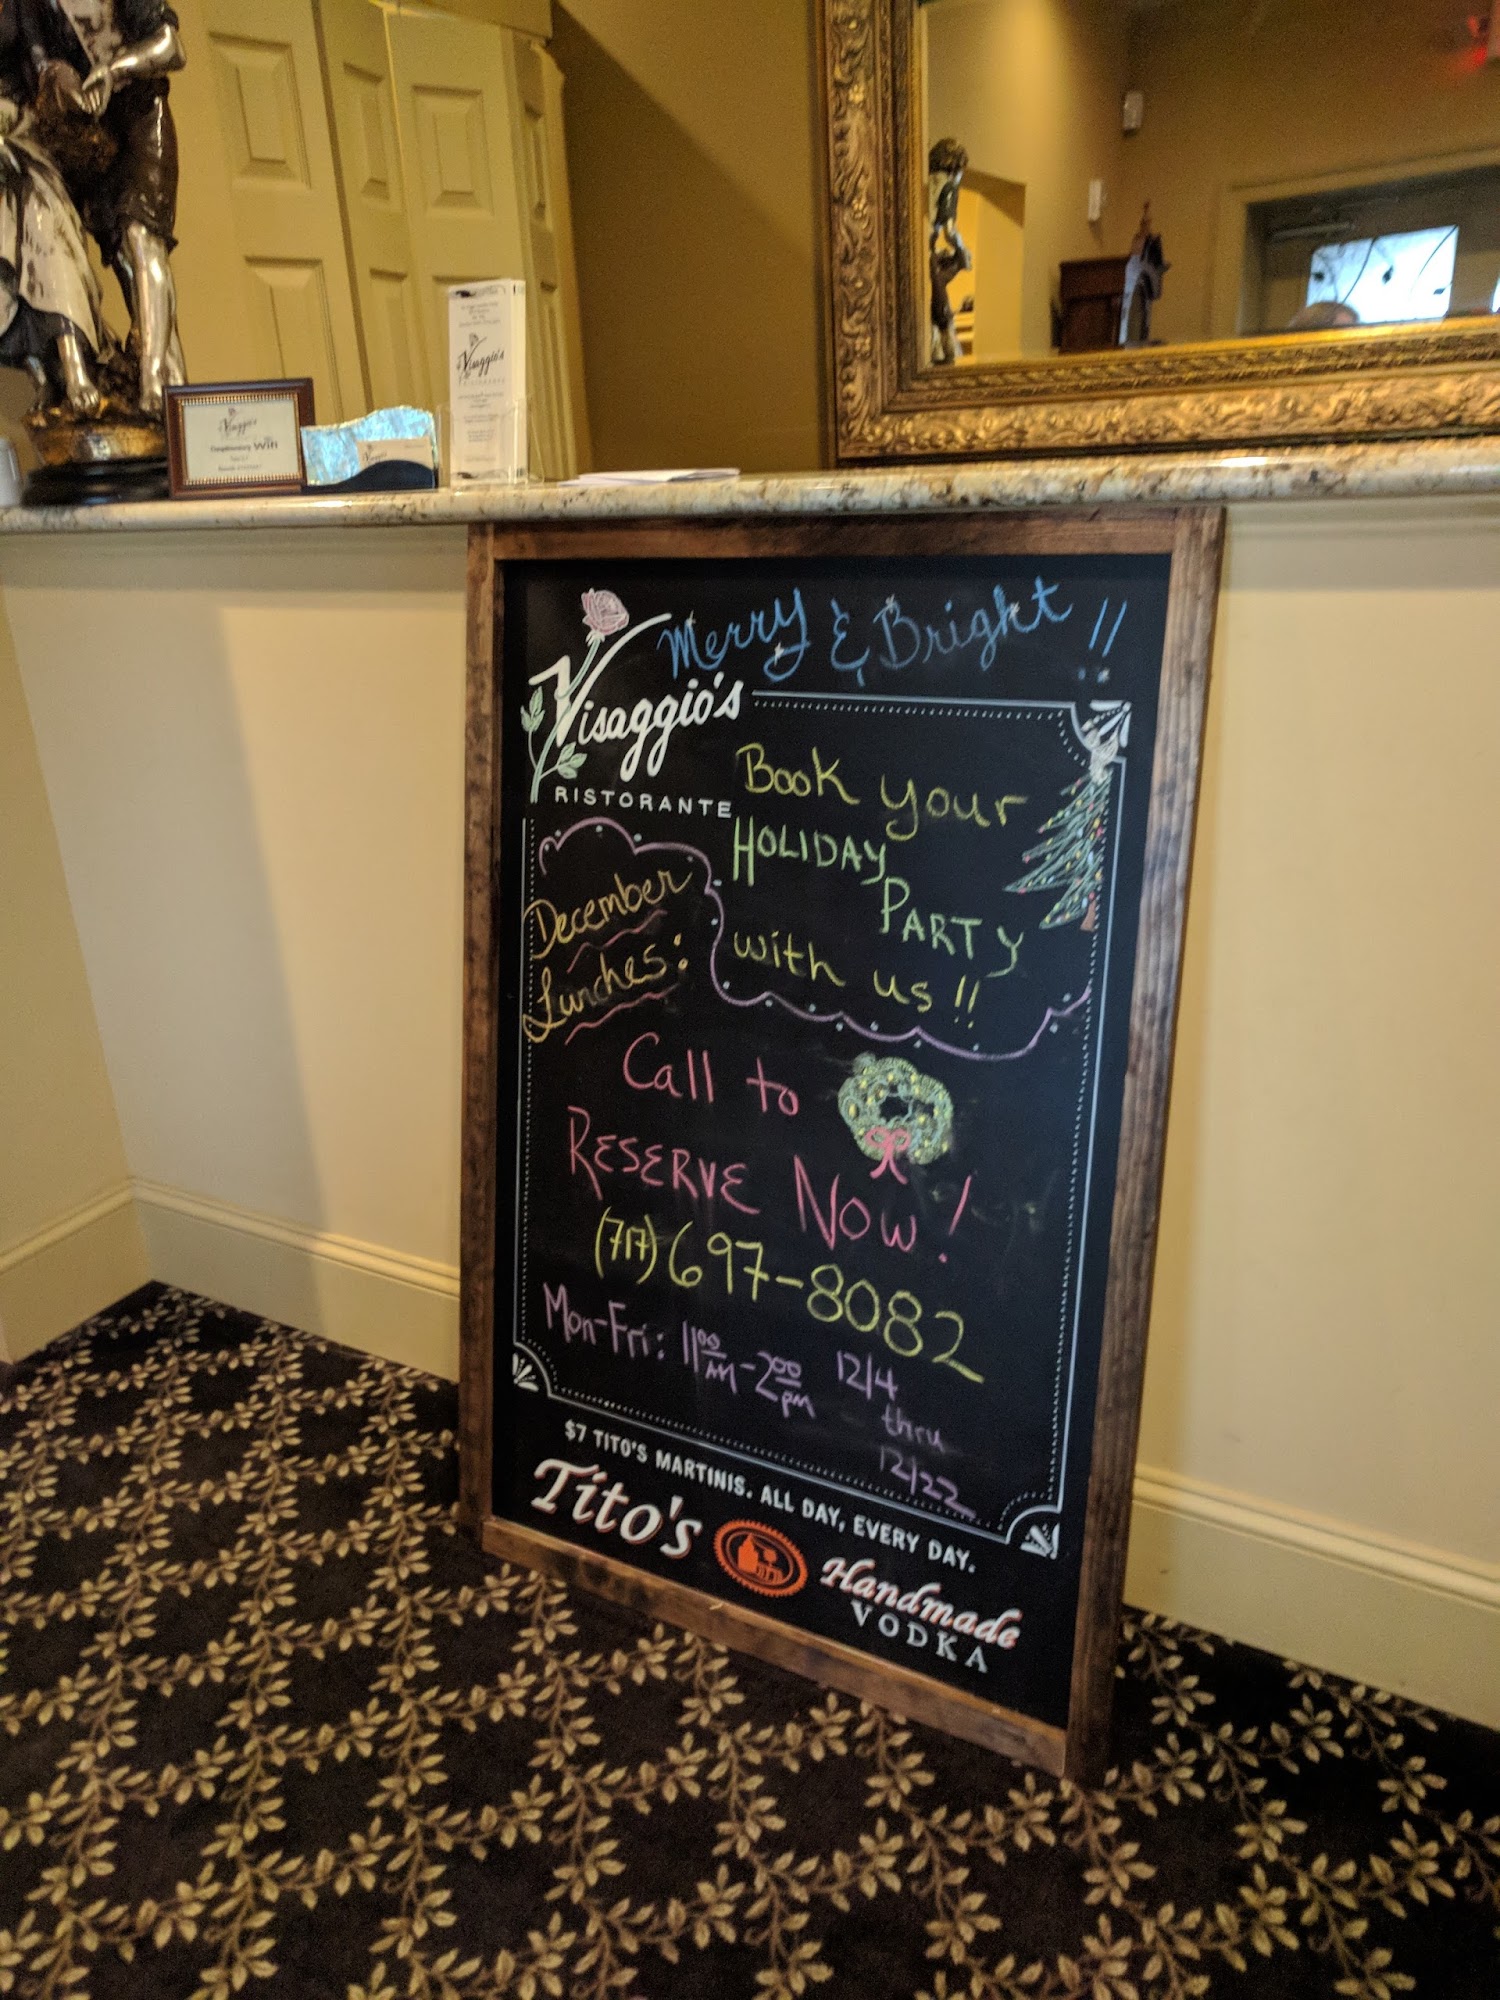 Visaggio's
Complimentary Wifi
Visaggio's
Visaggio's
Merry & Bright !!
Visaggio's
RISTORANTE
Book your
HOLIDAY
PARTY
with us !!
December
Lunches:
Call to
RESERVE NOW!
(717) 697-8082
Mon-Fri: 11:00 AM - 2:00 pm 12/4
thru
12/22
$7 TITO'S MARTINIS. ALL DAY, EVERY DAY.
Tito's
Handmade
VODKA